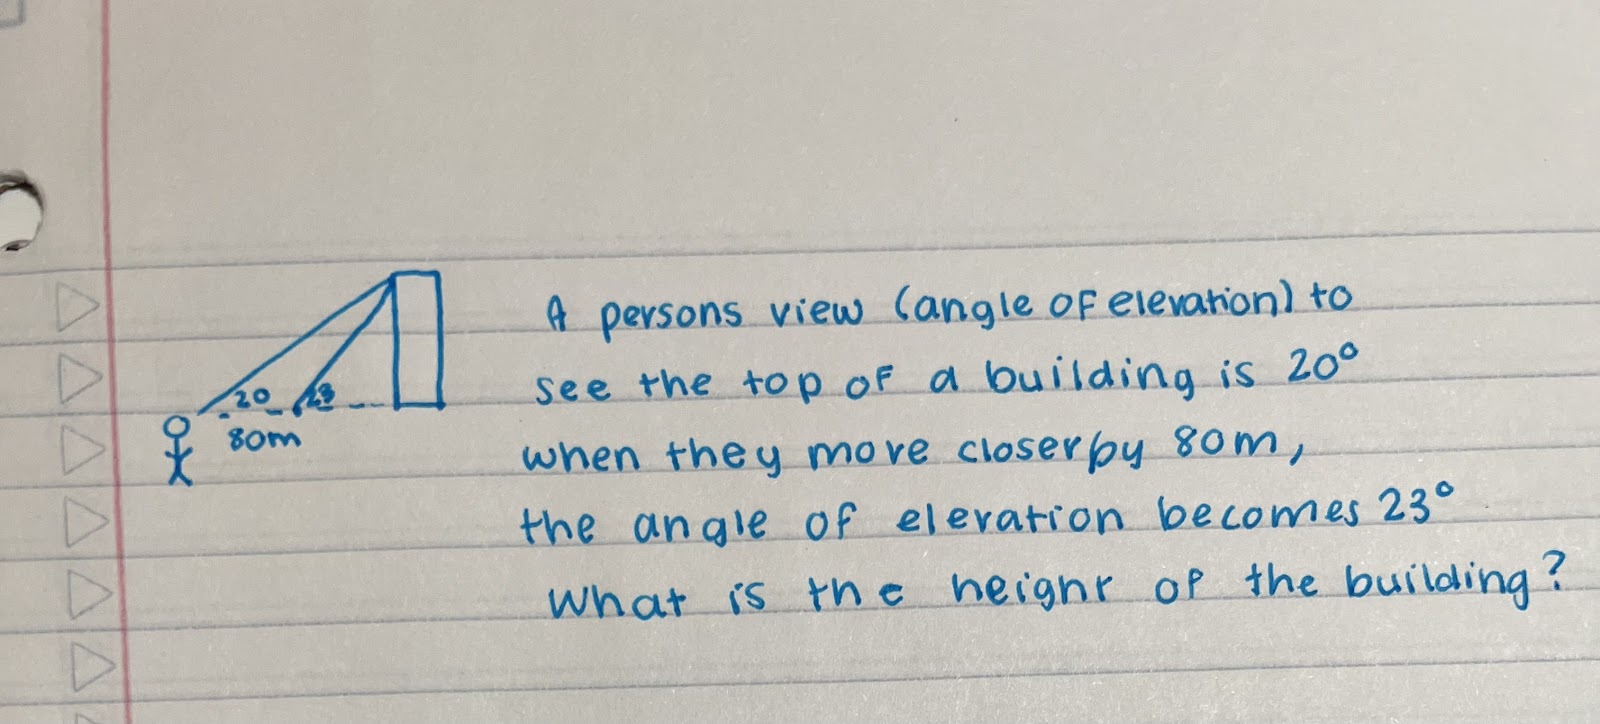 A persons view (angle of elevation) to
see the top of a building is 20°
when they move closer by 80m,
the angle of elevation becomes 23°
What is the height of the building?
20
23
80m